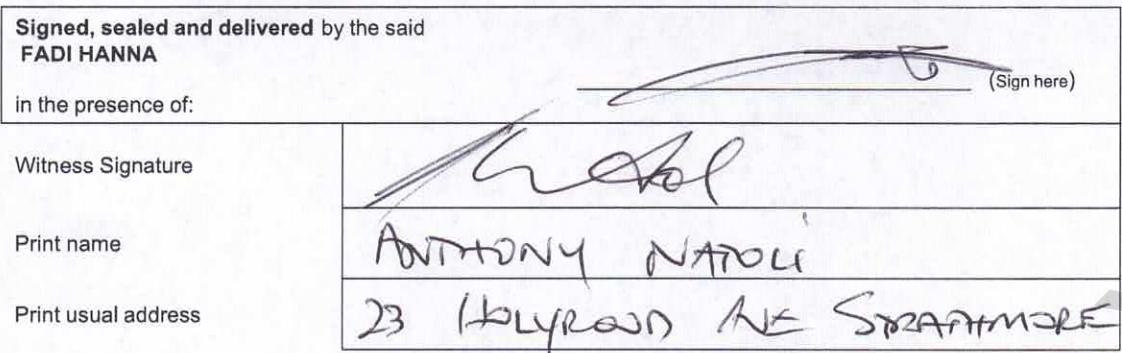 Signed, sealed and delivered by the said
FADI HANNA
(Sign here)
in the presence of:
Witness Signature
Print name ANTHONY NAPOLI
Print usual address 23 HOLYROOD AVE STRATHMORE